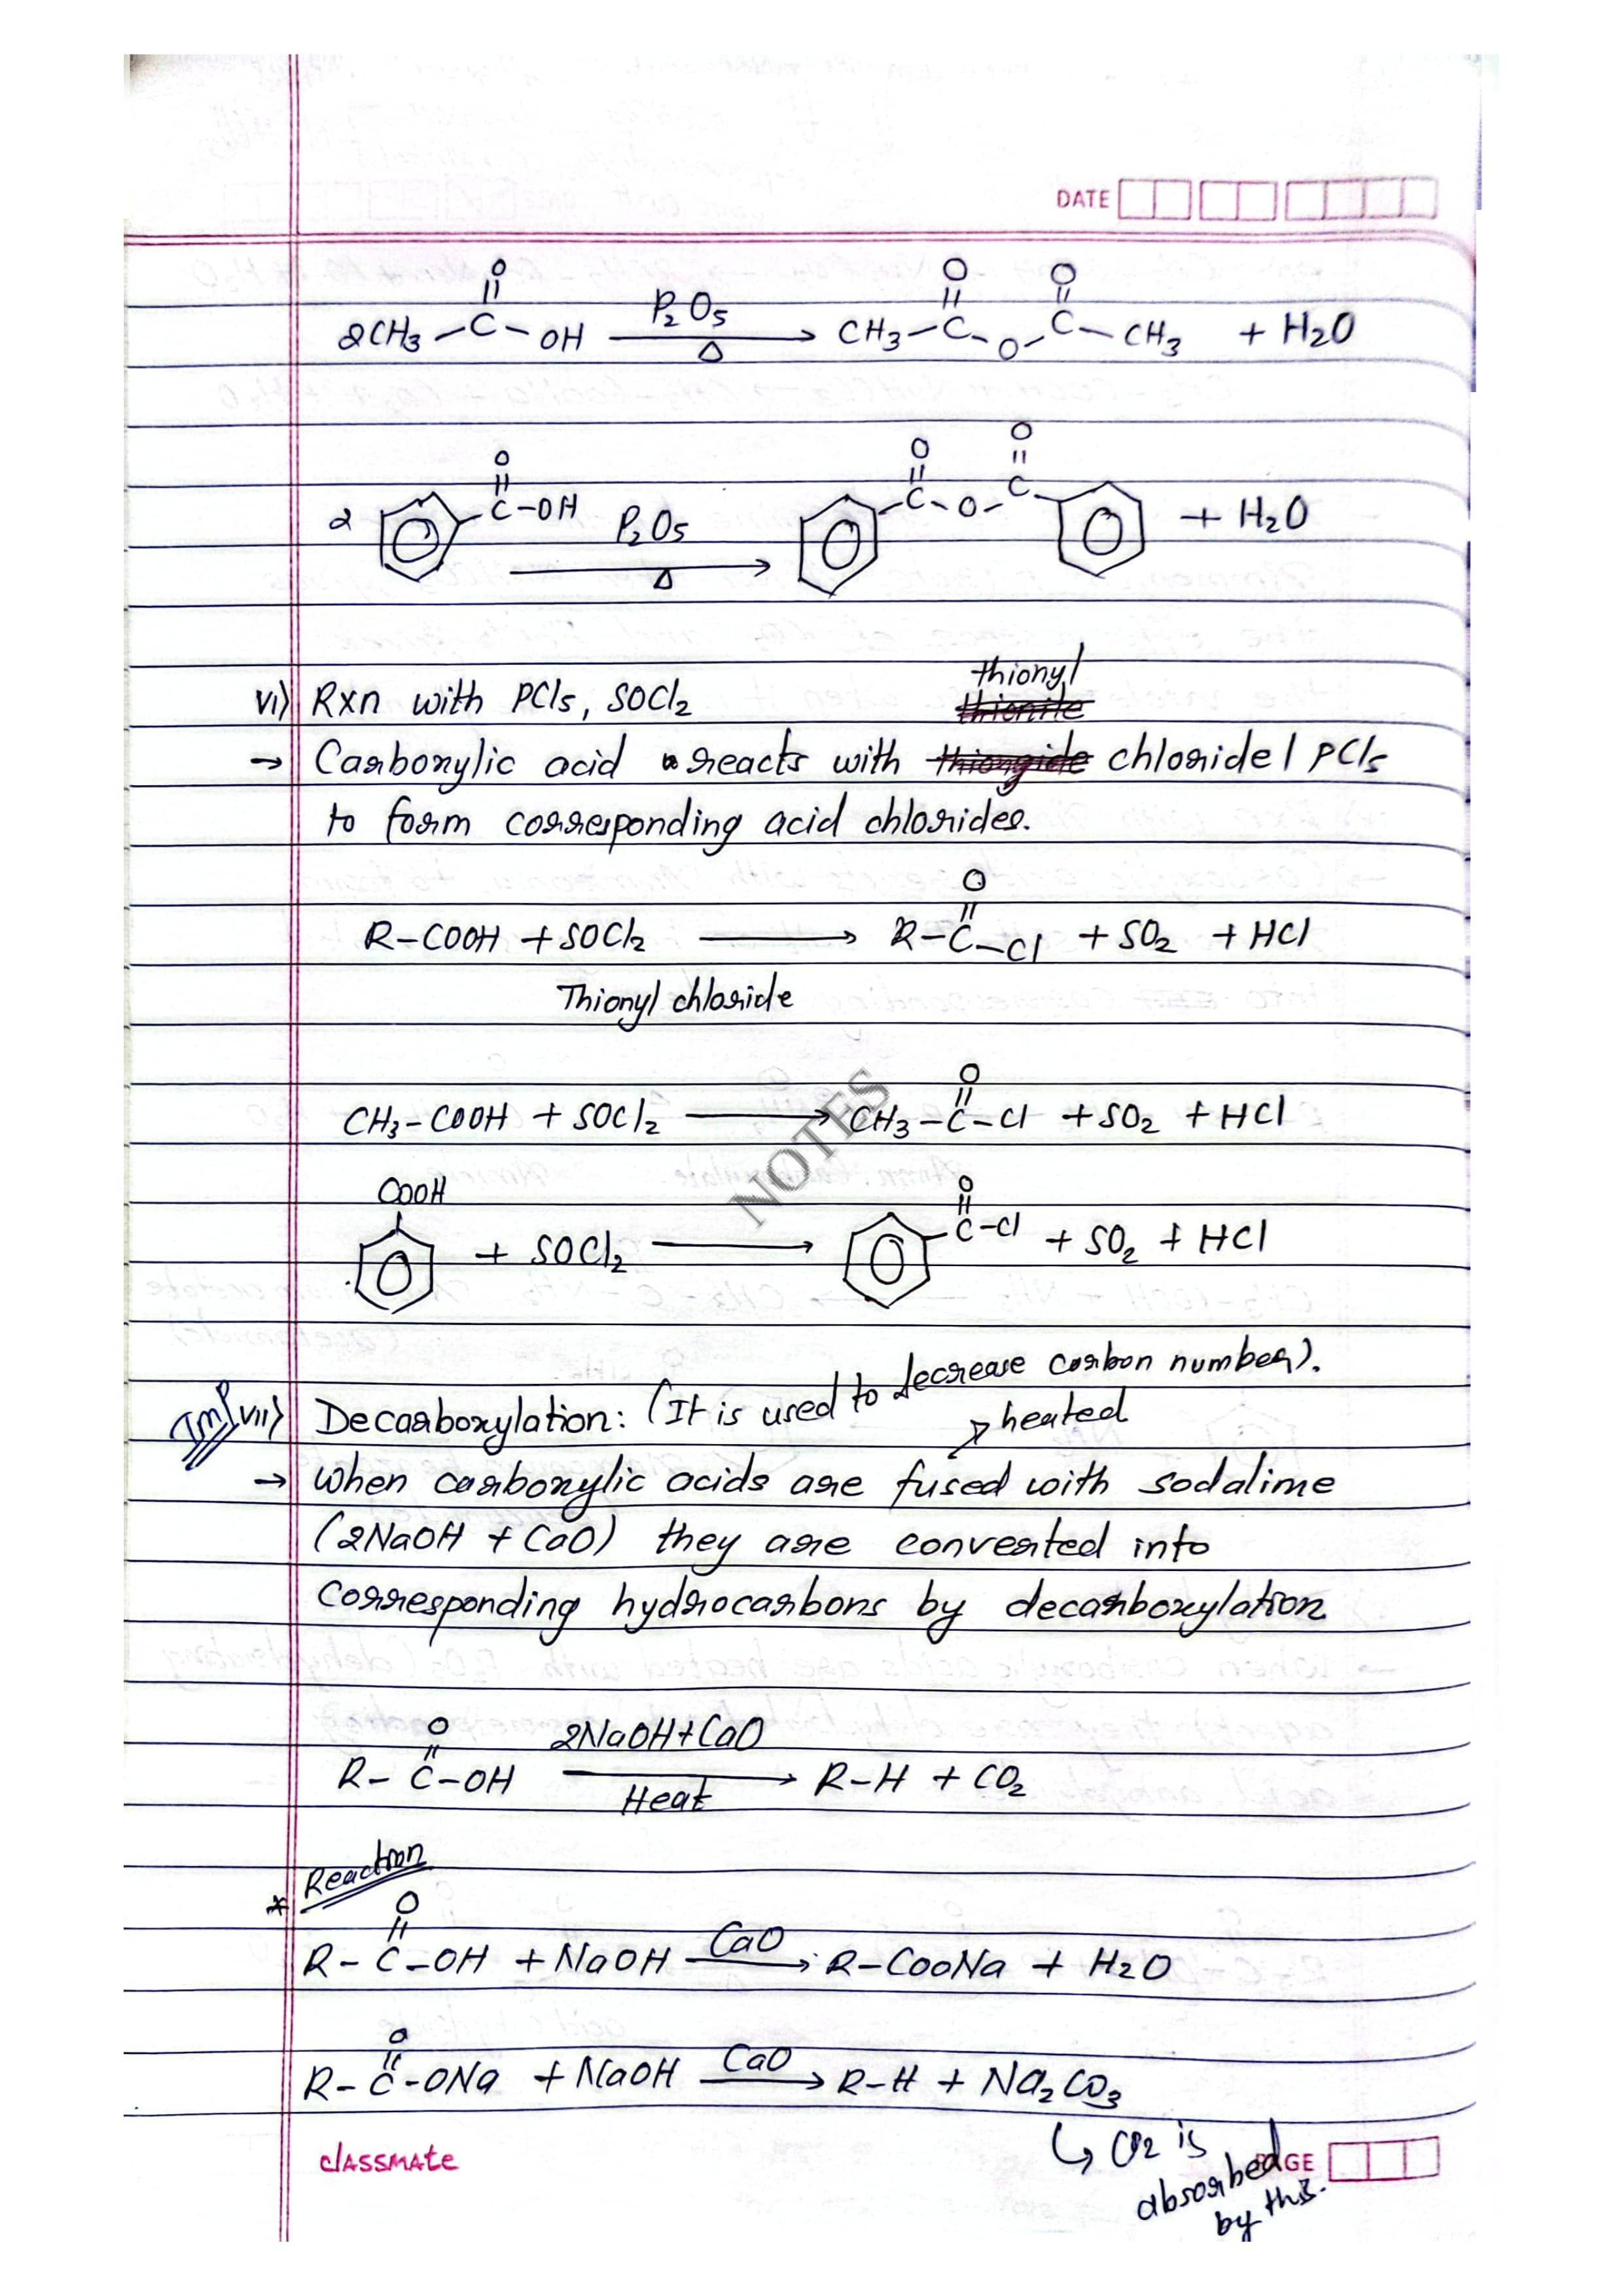 DATE
O
O O
2CH3 – C – OH P2O5 Δ → CH3 – C – O – C – CH3 + H2O
O O O
2 C – OH P2O5 Δ → C – O – C + H2O
thionyl
vi) Rxn with PCl5, SOCl2 thionite
→ Carboxylic acid reacts with chloride / PCl5
to form corresponding acid chlorides.
O
R–COOH + SOCl2 → R–C–Cl + SO2 + HCl
Thionyl chloride
O
CH3–COOH + SOCl2 → CH3–C–Cl + SO2 + HCl
NOTES
COOH O
+ SOCl2 → C–Cl + SO2 + HCl
Imp vii) Decarboxylation: (It is used to decrease carbon number).
heated
→ When carboxylic acids are fused with sodalime
(2NaOH + CaO) they are converted into
corresponding hydrocarbons by decarboxylation
O
R–C–OH 2NaOH+CaO Heat → R–H + CO2
* Reaction
O
R–C–OH + NaOH CaO → R–COONa + H2O
O
R–C–ONa + NaOH CaO → R–H + Na2CO3
↳ CO2 is
absorbed
by this.
classmate PAGE